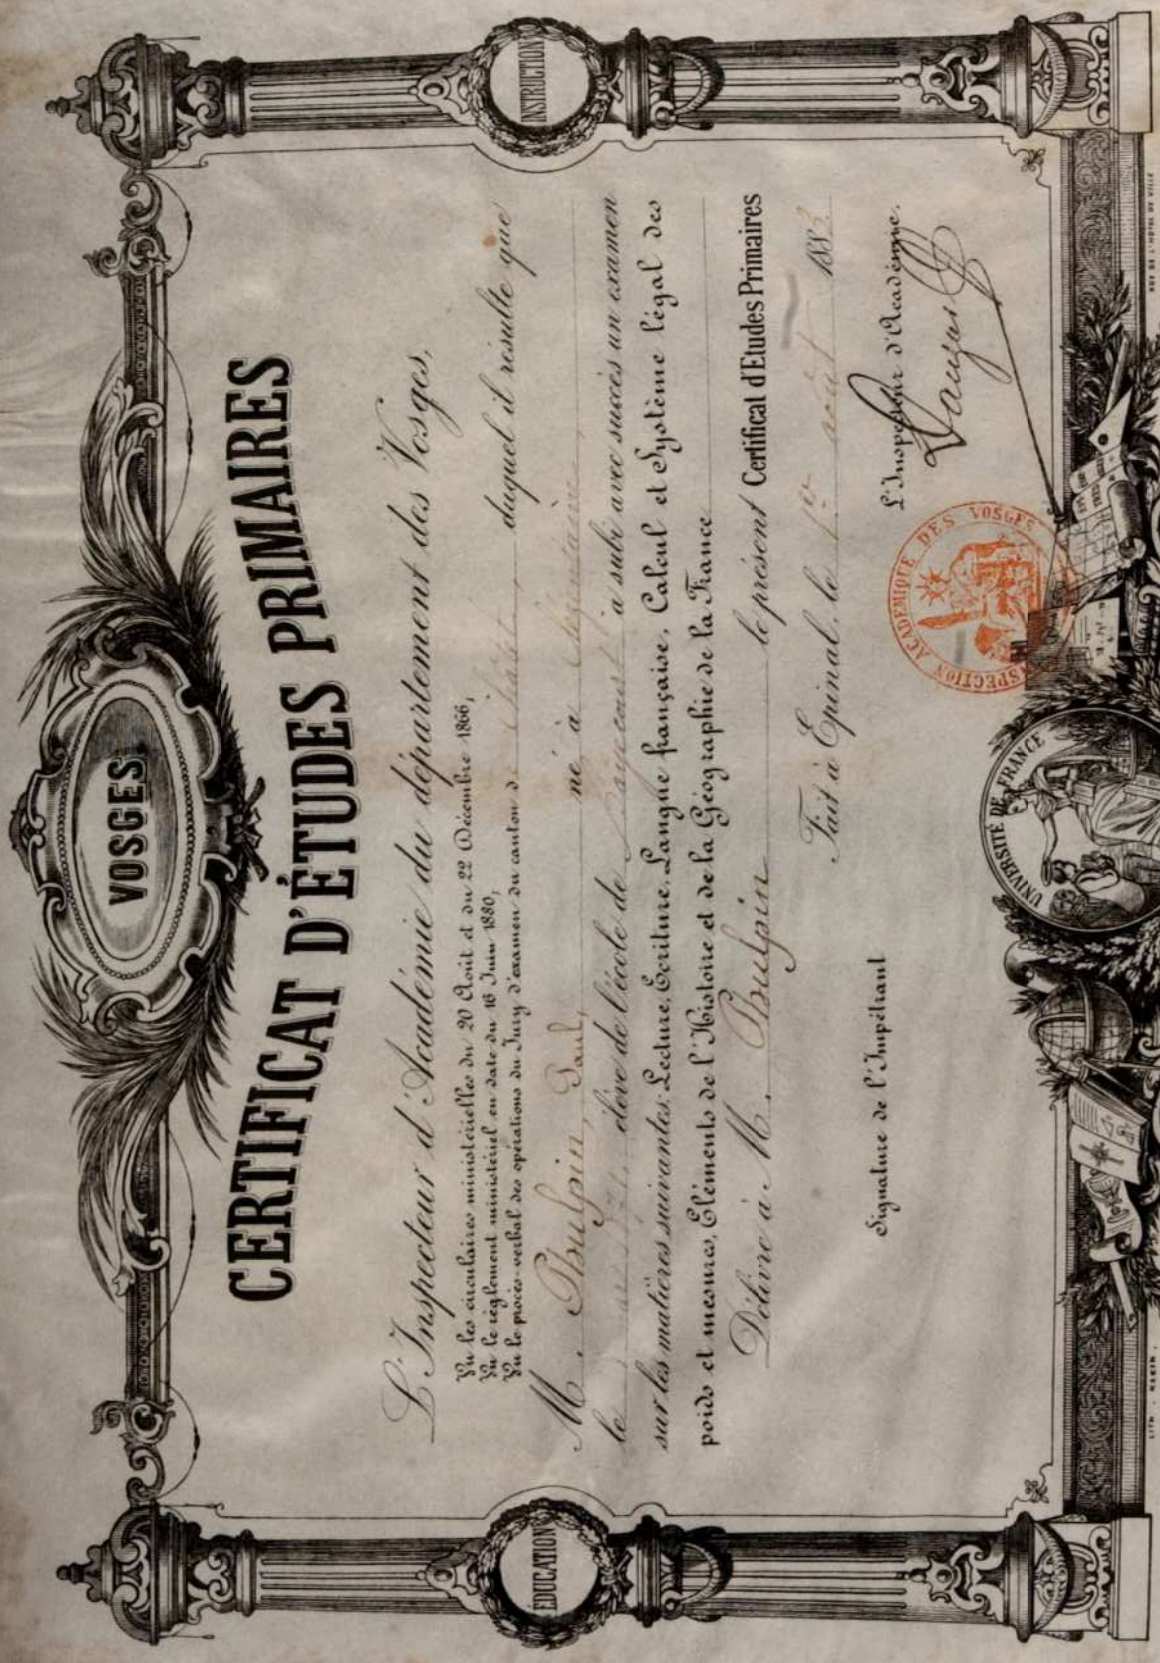 VOSGES
CERTIFICAT D'ÉTUDES PRIMAIRES
L'Inspecteur d'Académie du département des Vosges,
Vu les circulaires ministérielles du 20 Août et du 22 Décembre 1866,
Vu le règlement ministériel en date du 16 Juin 1880,
Vu le procès-verbal des opérations du Jury d'examen du canton d duquel il résulte que
M. Poulpin, Paul, né à
le élève de l'école de a subi avec succès un examen
sur les matières suivantes: Lecture, Ecriture, Langue française, Calcul et Système légal des
poids et mesures, Eléments de l'Histoire et de la Géographie de la France
Délivré à M. Poulpin le présent Certificat d'Etudes Primaires
Fait à Epinal, le 1er août 1883
Signature de l'Impétrant
L'Inspecteur d'Académie,
EDUCATION
INSTRUCTION
INSPECTION ACADEMIQUE DES VOSGES
UNIVERSITÉ DE FRANCE
LITH. KLEIN.
RUE DE L'HOTEL DE VILLE